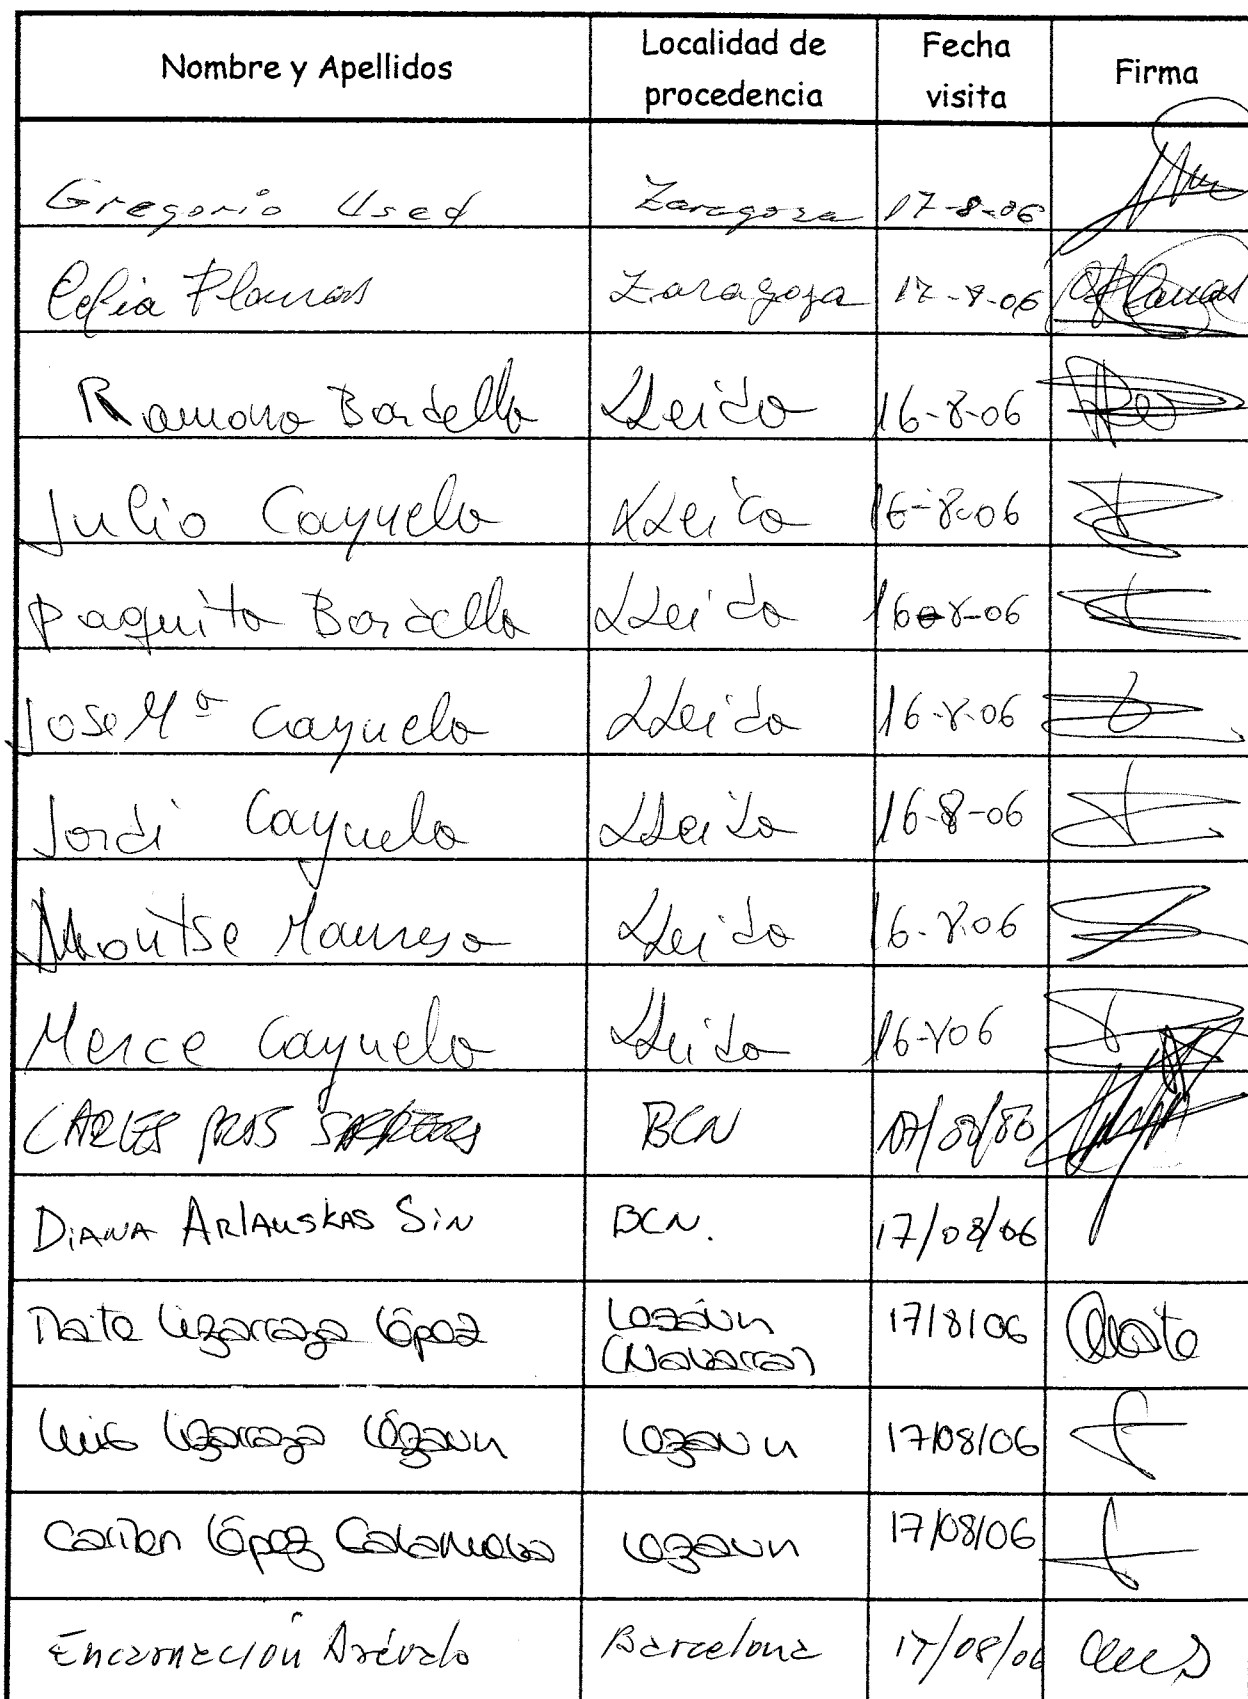 Nombre y Apellidos Localidad de procedencia Fecha visita Firma
Gregorio Used Zaragoza 17-8-06
Celia Planas Zaragoza 17-8-06
Ramona Bordella Lleida 16-8-06
Julio Cayuela Lleida 16-8-06
Paquita Bordella Lleida 16-8-06
Jose Mª Cayuela Lleida 16-8-06
Jordi Cayuela Lleida 16-8-06
Montse Manresa Lleida 16-8-06
Merce Cayuela Lleida 16-8-06
CARLES BCN
DIANA ARLAUSKAS SIN BCN. 17/08/06
Maite Lizarraga López (Navarra) 17/8/06 Maite
Luis Lizarraga 17/08/06
Carmen López 17/08/06
Encarnación Arévalo Barcelona 17/08/06